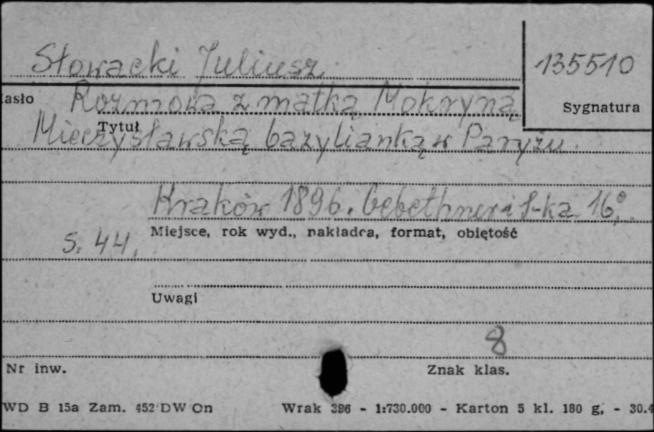 Słowacki Juliusz
135510
asło
Rozmowa z matką Mokryną
Sygnatura
Tytuł
Mieczysławską bazylianką w Paryżu.
Kraków 1896. Gebethner i S-ka 16°.
Miejsce, rok wyd., nakładca, format, objętość
S. 44.
Uwagi
8
Nr inw.
Znak klas.
WD B 15a Zam. 452 DW On Wrak 396 - 1:730.000 - Karton 5 kl. 180 g. - 30.4